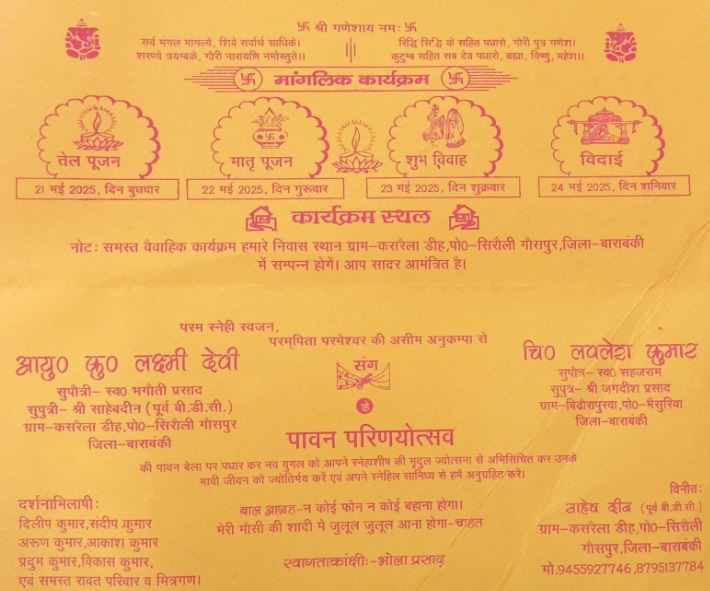 卐 श्री गणेशाय नमः 卐
सर्व मंगल मांगल्ये, शिवे सर्वार्थ साधिके।
शरण्ये त्रयम्बके, गौरी नारायणि नमोस्तुते।।
रिद्धि सिद्धि के सहित पधारो, गौरी पुत्र गणेश।
कुटुम्ब सहित सब देव पधारो, ब्रह्मा, विष्णु, महेश।।
卐 मांगलिक कार्यक्रम 卐
तेल पूजन
21 मई 2025, दिन बुधवार
मातृ पूजन
22 मई 2025, दिन गुरूवार
शुभ विवाह
23 मई 2025, दिन शुक्रवार
विदाई
24 मई 2025, दिन शनिवार
कार्यक्रम स्थल
नोटः समस्त वैवाहिक कार्यक्रम हमारे निवास स्थान ग्राम-कसरेला डीह,पो0-सिरौली गौसपुर,जिला-बाराबंकी
में सम्पन्न होगें। आप सादर आमंत्रित है।
परम स्नेही स्वजन,
परम्पिता परमेश्वर की असीम अनुकम्पा से
आयु0 कु0 लक्ष्मी देवी
सुपौत्री- स्व0 भगौती प्रसाद
सुपुत्री- श्री साहेबदीन (पूर्व बी.डी.सी.)
ग्राम-कसरेला डीह,पो0-सिरौली गौसपुर
जिला-बाराबंकी
संग
चि0 लवलेश कुमार
सुपौत्र- स्व0 सहजराम
सुपुत्र- श्री जगदीश प्रसाद
ग्राम-बिढौरापुरवा,पो0-भैसुरिया
जिला-बाराबंकी
के
पावन परिणयोत्सव
की पावन बेला पर पधार कर नव युगल को आपने स्नेहाशीष की मृदुल ज्योत्सना से अभिसिंचित कर उनके
भावी जीवन को ज्योतिर्मय करें एवं अपने स्नेहिल सानिध्य से हमें अनुग्रहित करें।
दर्शनाभिलाषीः
दिलीप कुमार,संदीप कुमार
अरूण कुमार,आकाश कुमार
प्रदुम कुमार,विकास कुमार,
एवं समस्त रावत परिवार व मित्रगण।
बाल आग्रह-न कोई फोन न कोई बहाना होगा।
मेरी मौसी की शादी मे जुलूल जुलूल आना होगा-चाहत
स्वागताकांक्षीः-भोला प्रसाद
विनीतः
साहेब दीन (पूर्व बी.डी.सी.)
ग्राम-कसरेला डीह,पो0-सिरौली
गौसपुर,जिला-बाराबंकी
मो.9455927746,8795137784